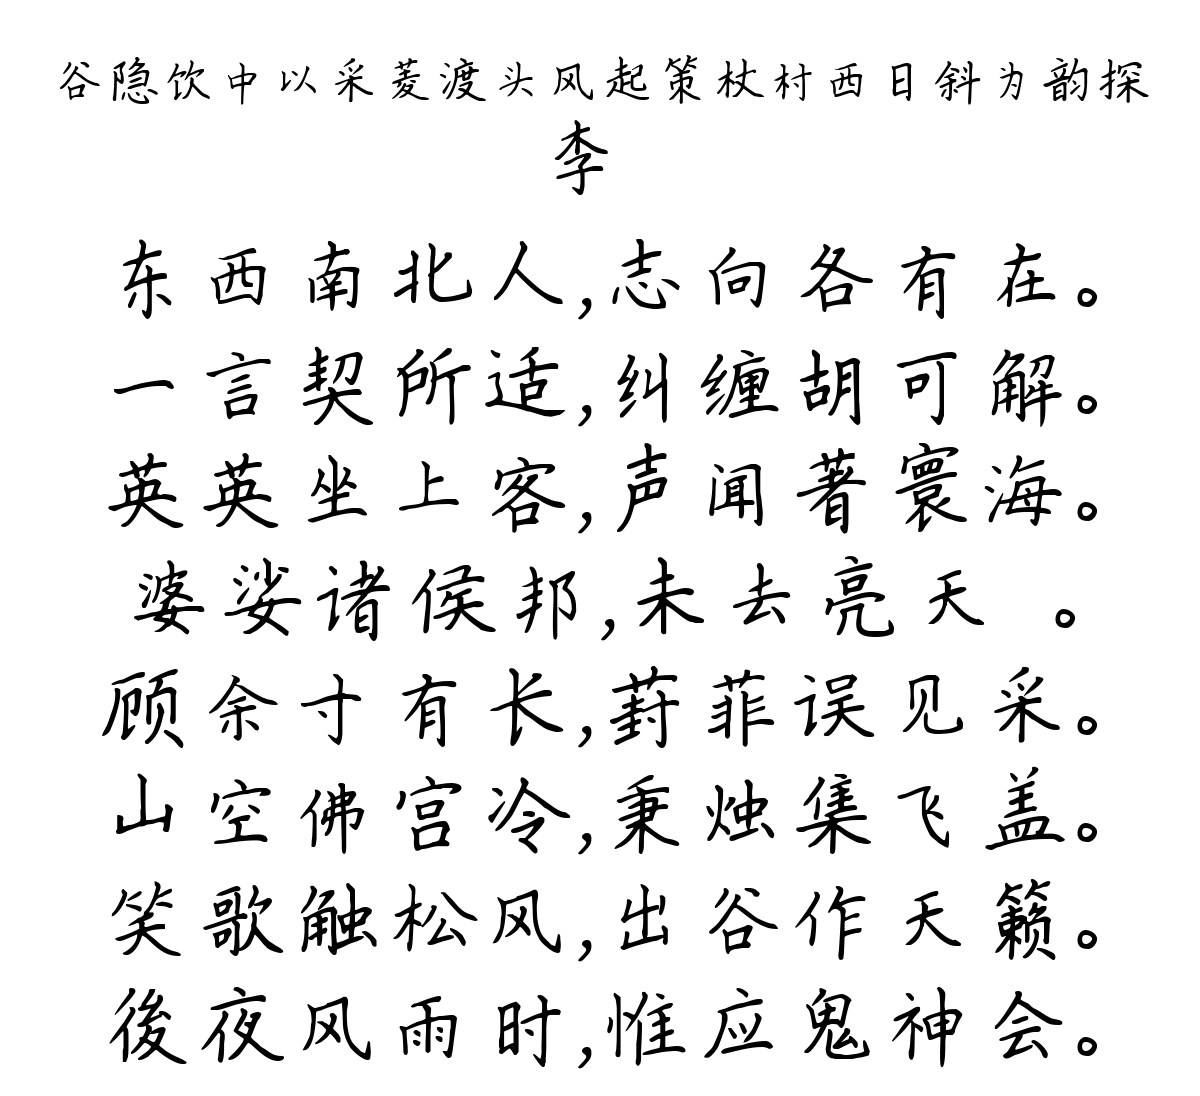 谷隐饮中以采菱渡头风起策杖村西日斜为韵探
李
东西南北人,志向各有在。
一言契所适,纠缠胡可解。
英英坐上客,声闻著寰海。
婆娑诸侯邦,未去亮天 。
顾余寸有长,葑菲误见采。
山空佛宫冷,秉烛集飞盖。
笑歌触松风,出谷作天籁。
後夜风雨时,惟应鬼神会。